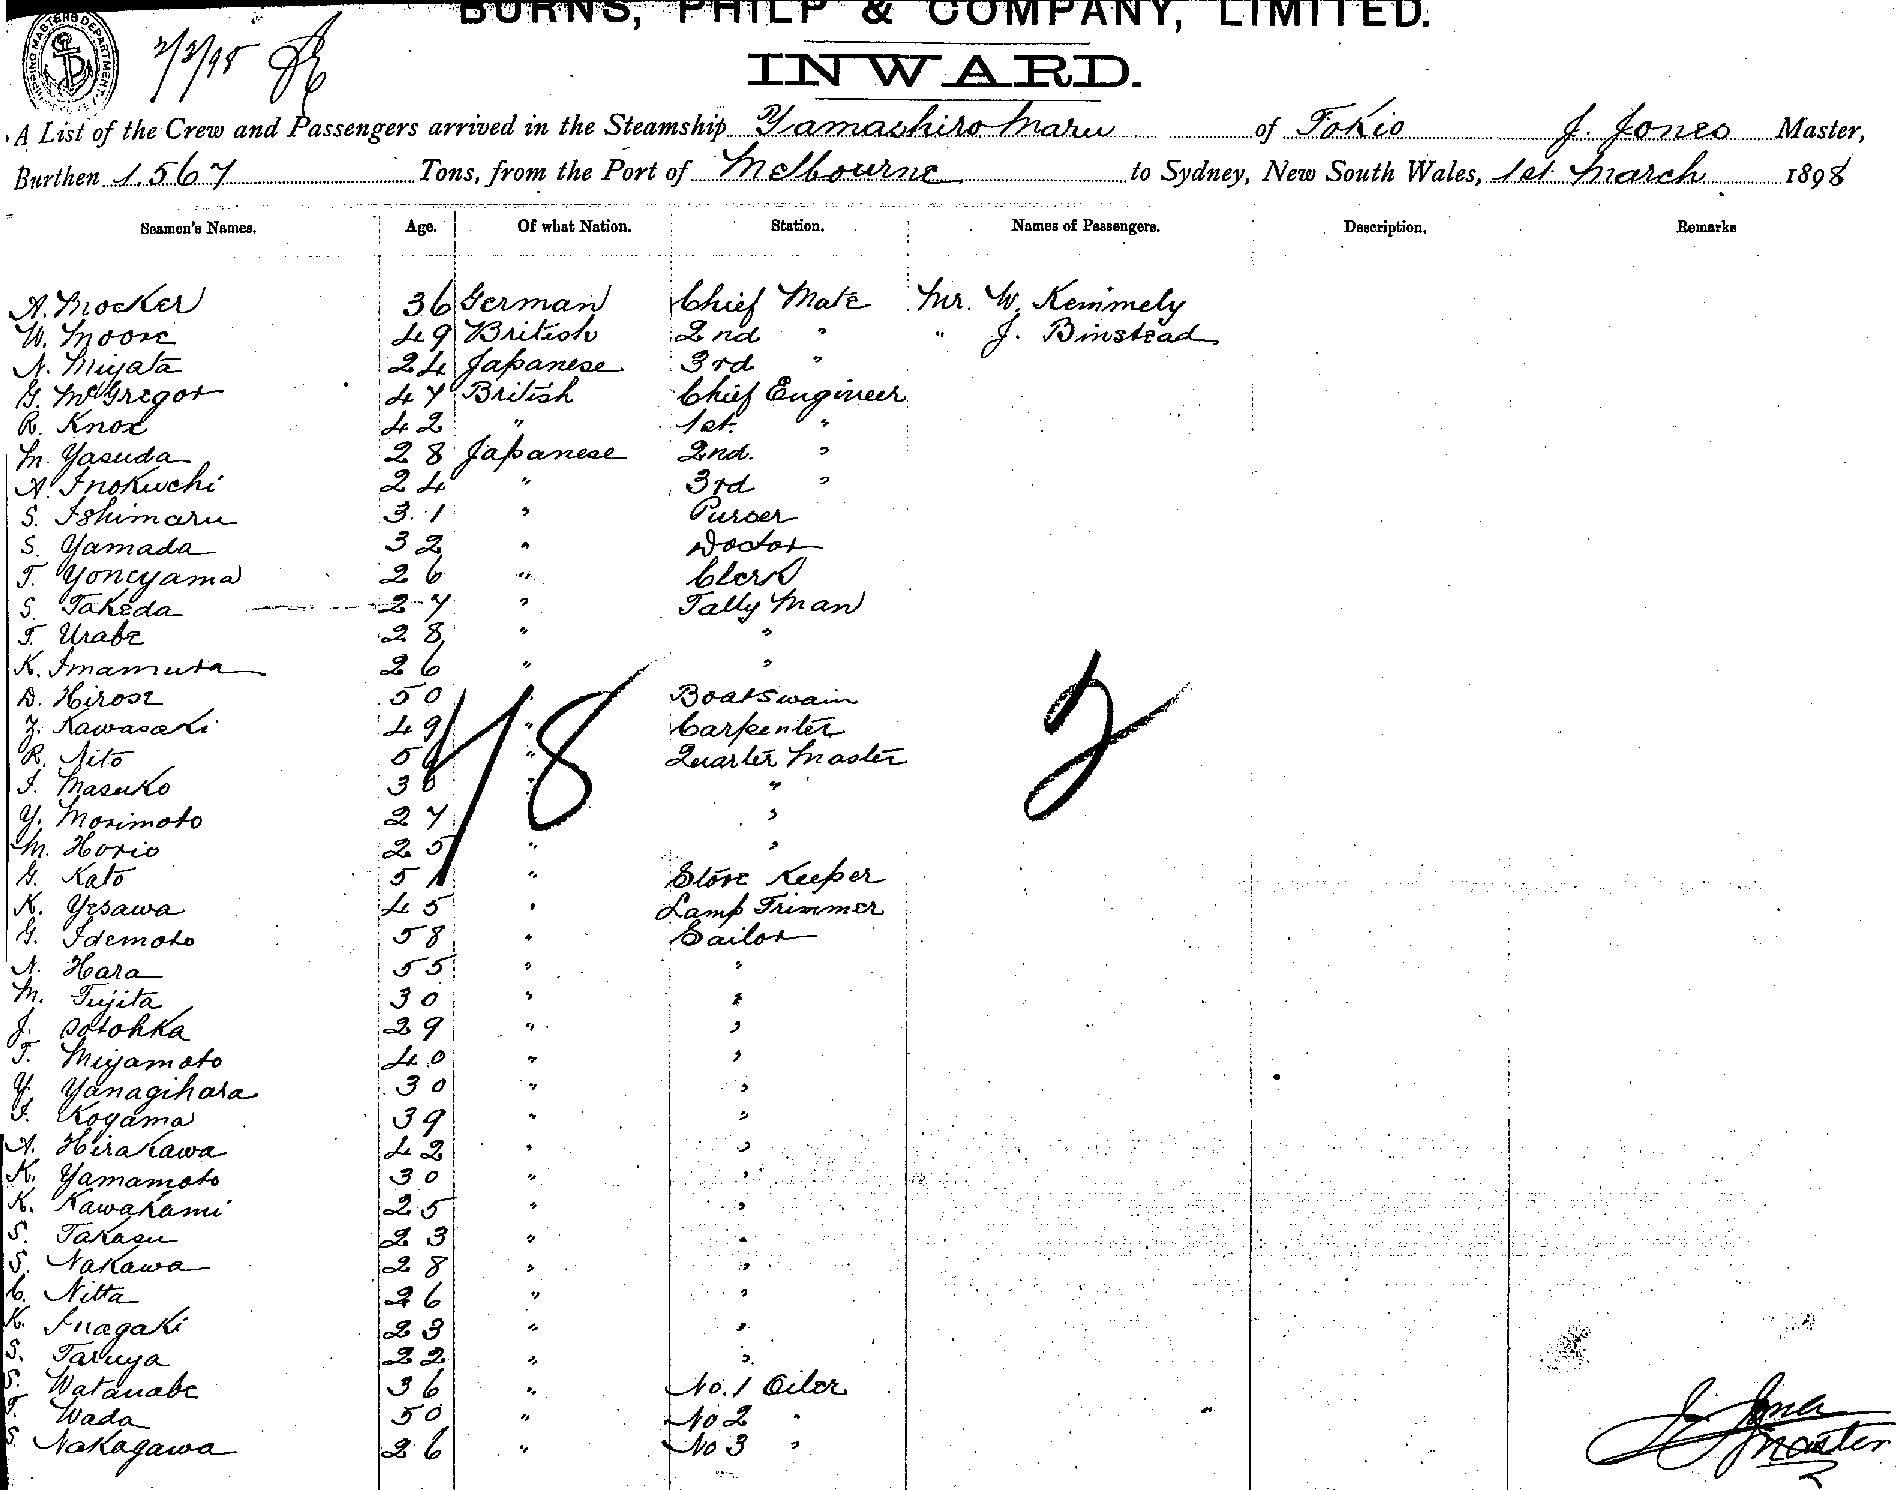 BURNS, PHILP & COMPANY, LIMITED.
INWARD.
2/3/98
A List of the Crew and Passengers arrived in the Steamship Yamashiro Maru of Tokio J. Jones Master,
Burthen 1.567 Tons, from the Port of Melbourne to Sydney, New South Wales, 1st March 1898
Seamen's Names. Age. Of what Nation. Station. Names of Passengers. Description. Remarks
A. Mocker 36 German Chief Mate Mr. W. Kemmely
W. Moore 49 British 2nd " " J. Binstead
N. Miyata 24 Japanese 3rd "
G. McGregor 47 British Chief Engineer
R. Knox 42 " 1st. "
M. Yasuda 28 Japanese 2nd. "
A. Inokuchi 24 " 3rd "
S. Ishimaru 31 " Purser
S. Yamada 32 " Doctor
T. Yoneyama 26 " Clerk
S. Takeda 27 " Tally Man
T. Urabe 28 " "
K. Imamura 26 " "
D. Hirose 50 " Boatswain
Z. Kawasaki 49 " Carpenter
R. Nito " Quarter Master
I. Masuko 30 " "
Y. Morimoto 27 " "
M. Horio 25 " "
G. Kato 51 " Store Keeper
K. Yesawa 45 " Lamp Trimmer
G. Idemoto 58 " Sailor
N. Hara 55 " "
M. Fujita 30 " "
J. Sotohka 29 " "
T. Miyamoto 40 " "
Y. Yanagihara 30 " "
I. Koyama 39 " "
N. Hirakawa 42 " "
K. Yamamoto 30 " "
K. Kawakami 25 " "
S. Takasu 23 " "
S. Nakawa 28 " "
C. Nitta 26 " "
K. Inagaki 23 " "
S. Taruya 22 " "
S. Watanabe 36 " No. 1 Oiler
T. Wada 50 " No 2 "
S. Nakagawa 26 " No 3 "
78
2
J. Jones
Master